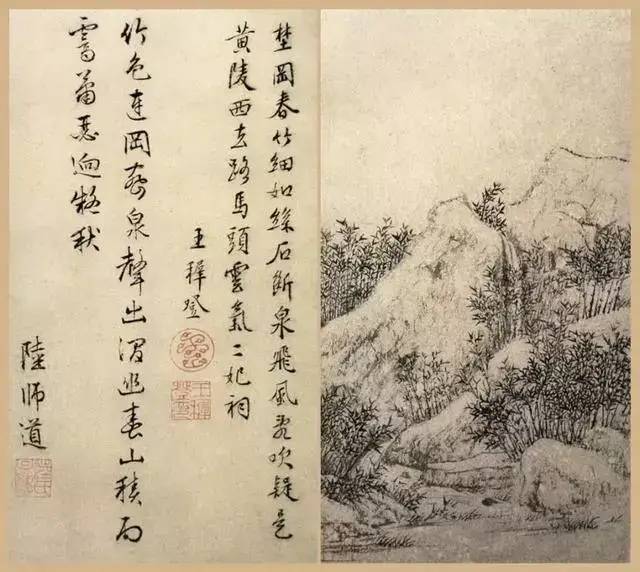 埜岡春竹細如絲石断泉飛風吹疑是
黃陵西去路馬頭雲氣二妃祠
王穉登
竹色連岡泉聲出澗幽春山積雨
霽蕭瑟逈秋
陸師道